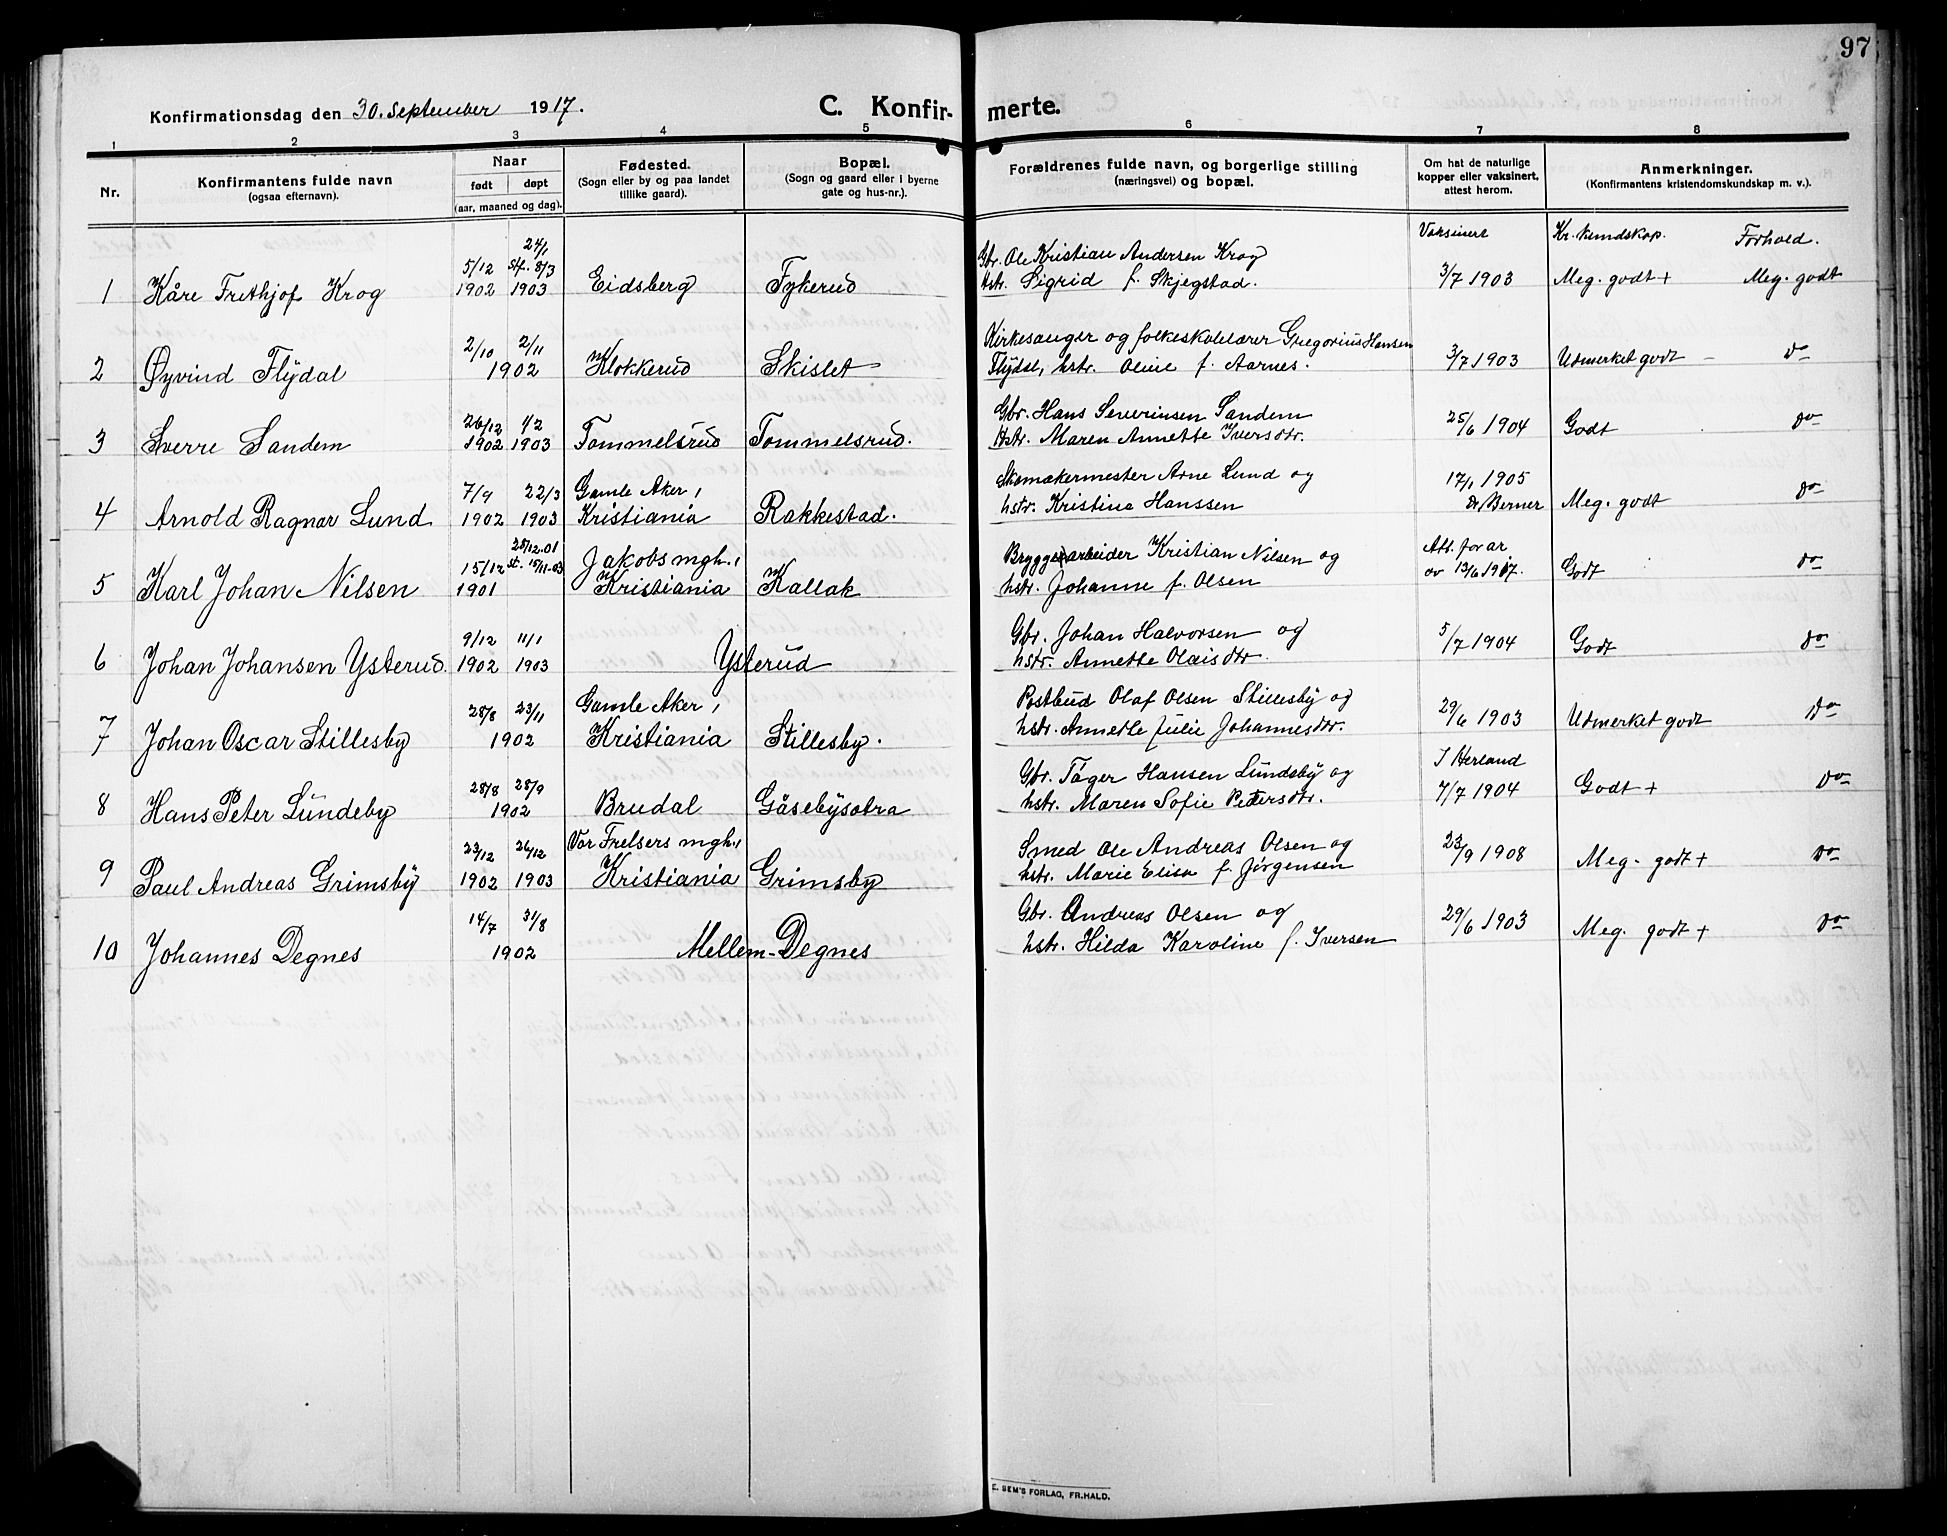 97
Konfirmationsdag den 30. September 1917.
C. Konfirmerte.
1 2 3 4 5 6 7 8
Nr.
Konfirmantens fulde navn
(ogsaa efternavn).
Naar
født døpt
(aar, maaned og dag).
Fødested.
(Sogn eller by og paa landet
tillike gaard).
Bopæl.
(Sogn og gaard eller i byerne
gate og hus-nr.).
Forældrenes fulde navn, og borgerlige stilling
(næringsvei) og bopæl.
Om hat de naturlige
kopper eller vaksinert,
attest herom.
Anmerkninger.
(Konfirmantens kristendomskundskap m. v.).
Vaksinert Kr. kundskap. Forhold.
24/1
5/12 stf. 8/3 Gbr. Ole Kristian Andersen Krog
1 Kåre Frithjof Krog 1902 1903 Eidsberg Fykerud Hstr. Sigrid f. Skjegstad. 3/7 1903 Meg. godt + Meg. godt
2/10 2/11 Kirkesanger og folkeskolelærer Gregorius Hansen
2 Øyvind Flydal 1902 Klokkerud Skislet Flydal, hstr. Oline f. Aarnes. 3/7 1903 Udmerket godt - do
26/12 1/2 Gbr. Hans Severinsen Sandem
3 Sverre Sandem 1902 1903 Tommelsrud Tommelsrud. Hstr. Maren Annette Iversdtr. 25/6 1904 Godt do
7/9 22/3 Gamle Aker, Skomakermester Arne Lund og 17/1 1905
4 Arnold Ragnar Lund 1902 1903 Kristiania Rakkestad. hstr. Kristine Hanssen Dr. Berner Meg. godt do
28/12.01
15/12 st. 15/11-03 Jakobs mgh., Bryggeriarbeider Kristian Nilsen og Att. for ar
5 Karl Johan Nilsen 1901 Kristiania Kallak hstr. Johanne f. Olsen av 13/6 1917. Godt do
9/12 11/1 Gbr. Johan Halvorsen og
6 Johan Johansen Ysterud. 1902 1903 Ysterud hstr. Annette Olaisdtr. 5/7 1904 Godt do
28/8 23/11 Gamle Aker, Postbud Olaf Olsen Stillesby og
7 Johan Oscar Stillesby 1902 Kristiania Stillesby. hstr. Annette Julie Johannesdtr. 29/6 1903 Udmerket godt do
28/8 28/9 Gbr. Tøger Hansen Lundeby og I Herland
8 Hans Peter Lundeby 1902 Brudal Gåsebysotra hstr. Maren Sofie Pedersdtr. 7/7 1904 Godt + do
23/12 26/12 Vor Frelsers mgh., Smed Ole Andreas Olsen og
9 Paul Andreas Grimsby 1902 1903 Kristiania Grimsby hstr. Marie Elisa f. Jørgensen 23/9 1908 Meg. godt + do
14/7 31/8 Gbr. Andreas Olsen og
10 Johannes Degnes 1902 Mellem-Degnes hstr. Hilda Karoline f. Iversen 29/6 1903 Meg. godt + do
E. SEM'S FORLAG, FR.HALD.